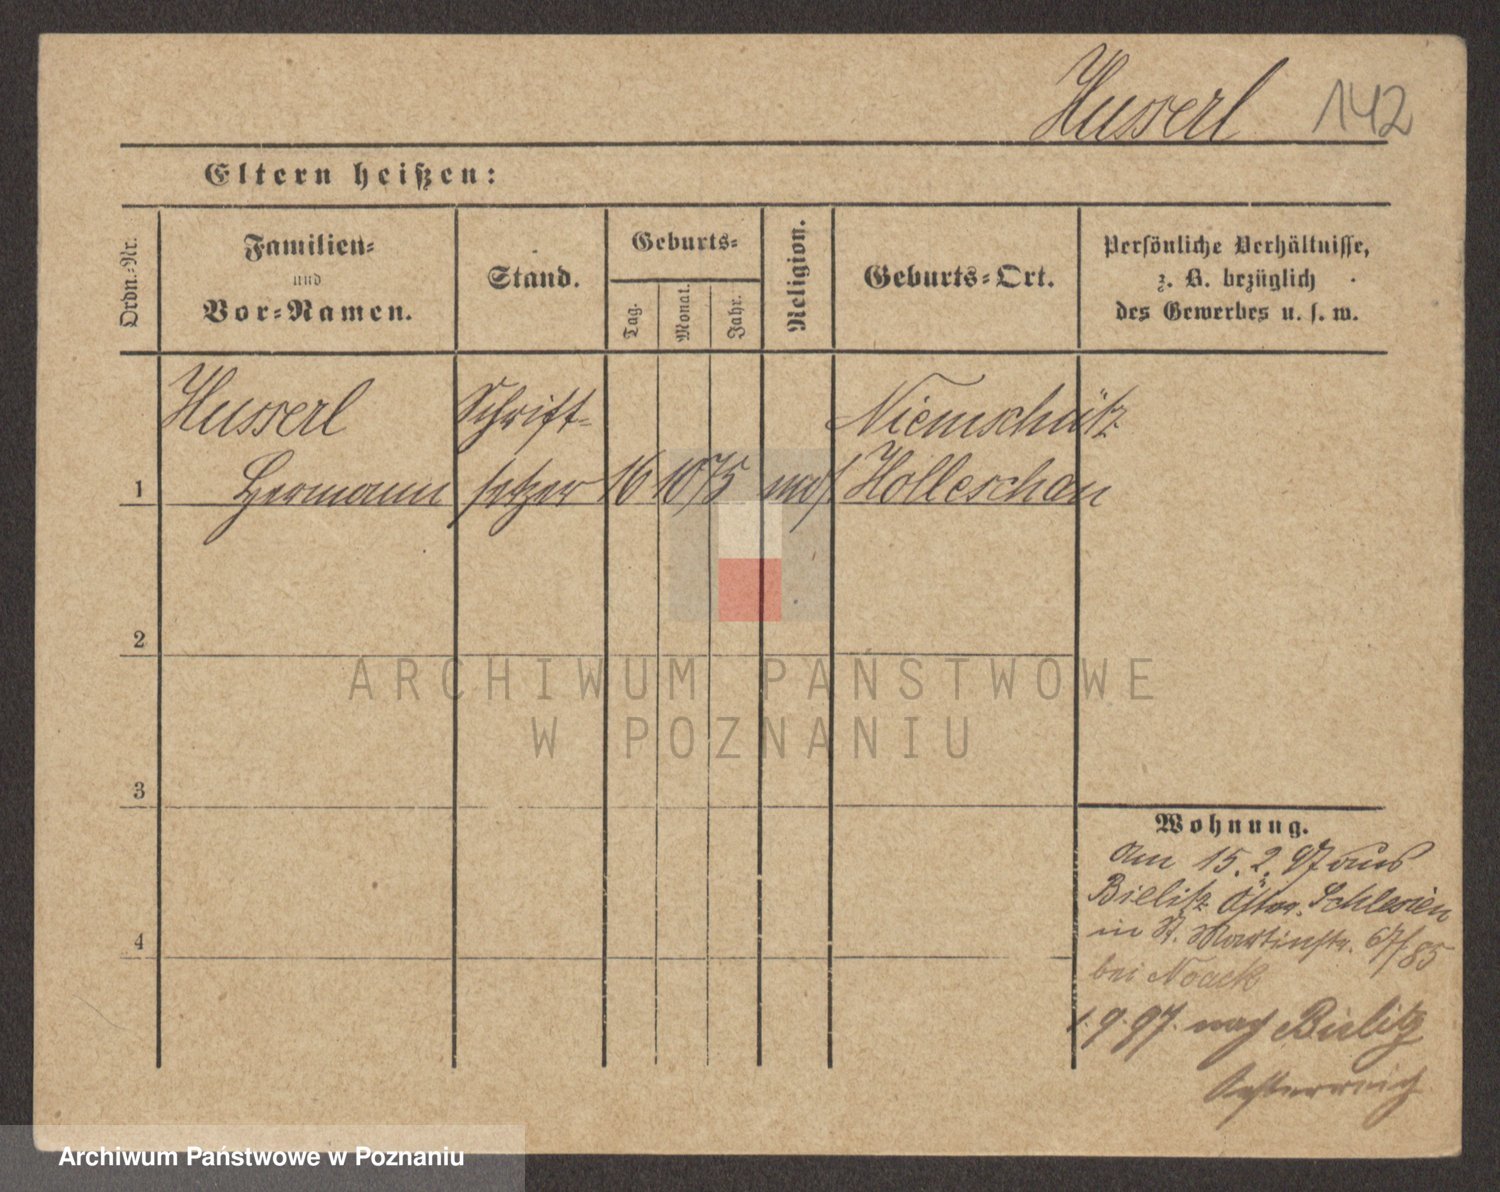 Husserl 142
Eltern heißen:
Ordn.-Nr.
Familien-
und
Vor-Namen.
Stand.
Geburts-
Tag.
Monat.
Jahr.
Religion.
Geburts-Ort.
Persönliche Verhältnisse,
z. B. bezüglich
des Gewerbes u. s. w.
Husserl Schrift- Niemschütz
1 Hermann setzer 16 10 75 mos. Holleschau
2
ARCHIWUM PAŃSTWOWE
W POZNANIU
3
Wohnung.
am 15.2.97 aus
Bielitz Öster. Schlesien
4
in St. Martinstr. 67/85
bei Noack
1.9.97. nach Bielitz
Oesterreich
Archiwum Państwowe w Poznaniu